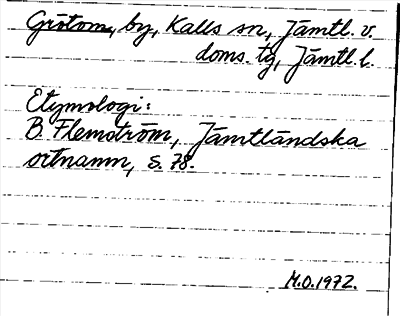 Grötom, by, Kalls sn, Jämtl. v.
doms. tg, Jämtl. l.
Etymologi:
B. Flemström, Jämtländska
ortnamn, s. 78.
M.O. 1972.